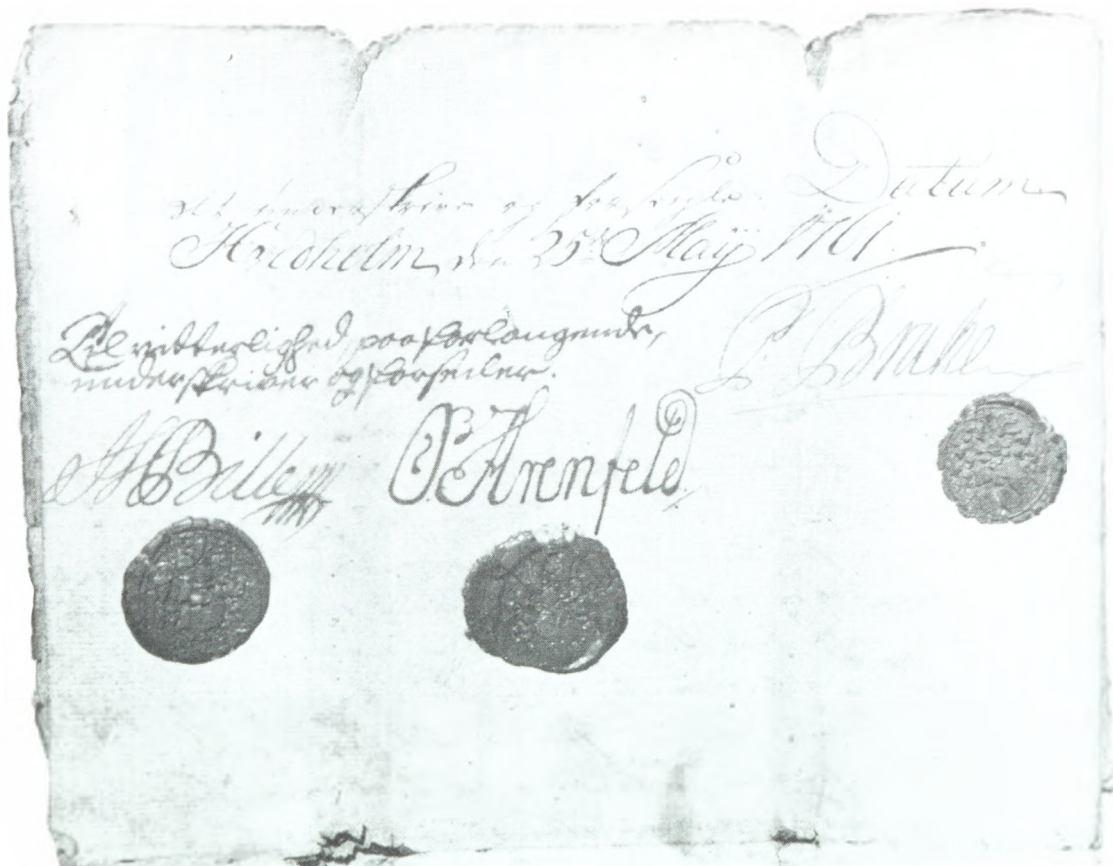 at underskrive og forseigle. Datum
Hvidholm den 25de Maij 1761.
Til vitterlighed paa forlangende,
underskriver og forseiler.
P. Brahe
Bille
Arenfeld